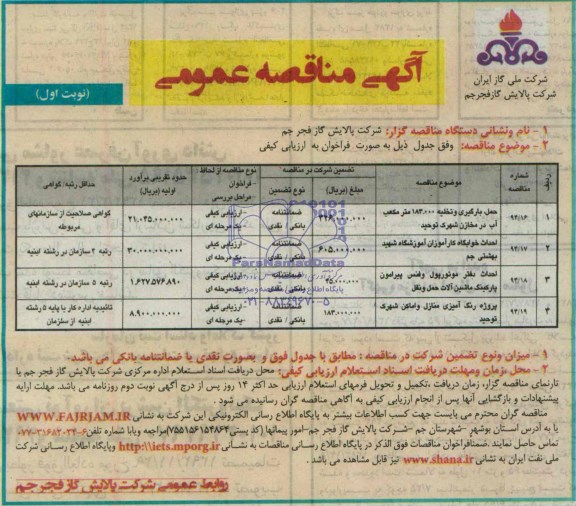 آگهی مناقصه عمومی
(نوبت اول)
شرکت ملی گاز ایران
شرکت پالایش گاز فجر جم
۱ - نام ونشانی دستگاه مناقصه گزار: شرکت پالایش گاز فجر جم
۲ - موضوع مناقصه: وفق جدول ذیل به صورت فراخوان به ارزیابی کیفی
ردیف | شماره مناقصه | موضوع مناقصه | تضمین شرکت در مناقصه: مبلغ (ریال) | نوع تضمین | نوع مناقصه از لحاظ - فراخوان - مراحل بررسی | حدود تقریبی برآورد اولیه (ریال) | حداقل رتبه/ گواهی
۱ | ۹۴/۱۶ | حمل، بارگیری وتخلیه ۱۸۳.۰۰۰ متر مکعب آب در مخازن شهرک توحید | ضمانتنامه بانکی / نقدی | -ارزیابی کیفی -یک مرحله ای | ۲۱.۰۳۵.۰۰۰.۰۰۰ | گواهی صلاحیت از سازمانهای مربوطه
۲ | ۹۴/۱۷ | احداث خوابگاه کارآموزان آموزشگاه شهید بهشتی جم | ۶۰۵.۰۰۰.۰۰۰ | ضمانتنامه بانکی / نقدی | -ارزیابی کیفی -یک مرحله ای | ۳۰.۰۰۰.۰۰۰.۰۰۰ | رتبه ۴ سازمان در رشته ابنیه
۳ | ۹۴/۱۸ | احداث دفتر موتورپول وفنس پیرامون پارکینگ ماشین آلات حمل ونقل | ضمانتنامه بانکی / نقدی | -ارزیابی کیفی -یک مرحله ای | ۱.۶۲۷.۵۷۶.۸۹۰ | رتبه ۵ سازمان در رشته ابنیه
۴ | ۹۴/۱۹ | پروژه رنگ آمیزی منازل واماکن شهرک توحید | ۱۸۳.۰۰۰.۰۰۰ | ضمانتنامه بانکی / نقدی | -ارزیابی کیفی -یک مرحله ای | ۸.۹۰۰.۰۰۰.۰۰۰ | تائیدیه اداره کار یا پایه ۵ رشته ابنیه از سازمان
ParsNamadData
۰۲۱-۸۸۳۴۹۶۷۰-۵
۱ - میزان ونوع تضمین شرکت در مناقصه : مطابق با جدول فوق و بصورت نقدی یا ضمانتنامه بانکی می باشد.
۲ - محل، زمان ومهلت دریافت اسناد استعلام ارزیابی کیفی: محل دریافت اسناد استعلام اداره مرکزی شرکت پالایش گاز فجر جم یا
تارنمای مناقصه گزار، زمان دریافت ،تکمیل و تحویل فرمهای استعلام ارزیابی حد اکثر ۱۴ روز پس از درج آگهی نوبت دوم روزنامه می باشد. مهلت ارایه
پیشنهادات و بازگشایی آنها پس از انجام ارزیابی کیفی به آگاهی مناقصه گران رسانیده می شود.
مناقصه گران محترم می بایست جهت کسب اطلاعات بیشتر به پایگاه اطلاع رسانی الکترونیکی این شرکت به نشانی WWW.FAJRJAM.IR
یا به آدرس استان بوشهر -شهرستان جم -شرکت پالایش گاز فجر جم-امور پیمانها (کد پستی ۷۵۵۱۵۶۱۵۴۸۶۴)مراجعه ویابا شماره تلفن ۶-۰۷۷-۳۱۶۸۲۰۳۴
تماس حاصل نمایند .ضمنافراخوان مناقصات فوق الذکر در پایگاه اطلاع رسانی مناقصات به نشانی http:\\iets.mporg.ir وپایگاه اطلاع رسانی شرکت
ملی نفت ایران به نشانی www.shana.ir نیز قابل مشاهده می باشد .
روابط عمومی شرکت پالایش گاز فجر جم